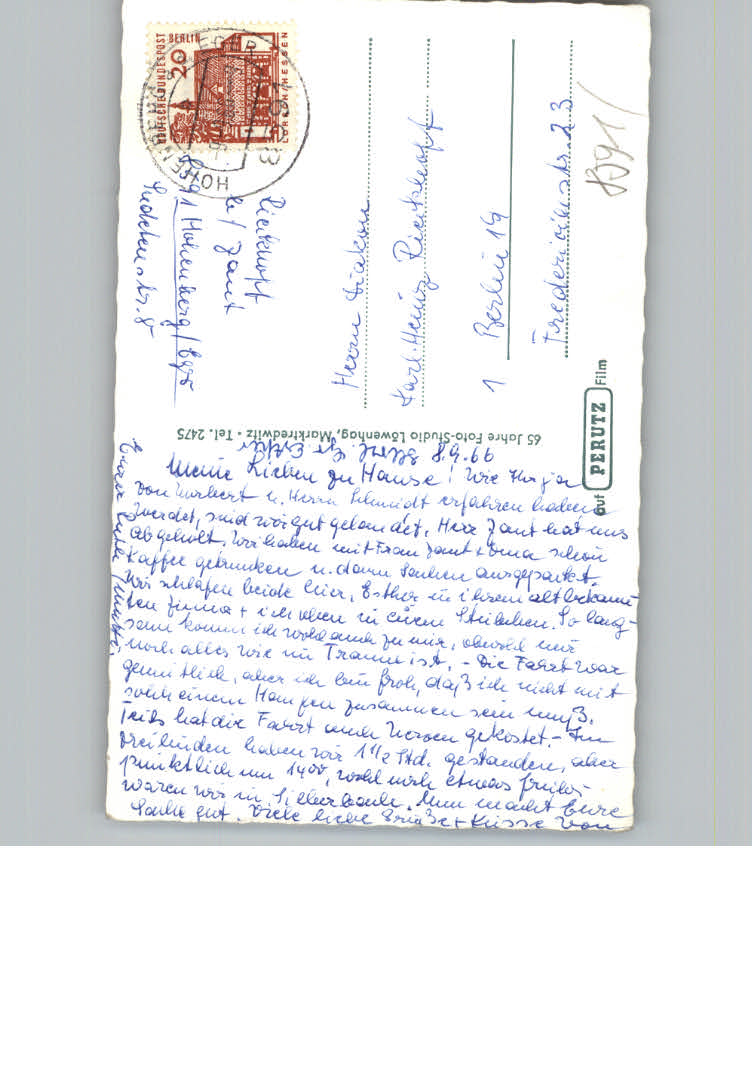 DEUTSCHE BUNDESPOST BERLIN
20
LORSCH/HESSEN
HOHENBERG
Rieckhoff
b/ Jant
8591 Hohenberg/Eger
Sudetenstr. 8
Herrn Diakon
Karl-Heinz Rieckhoff
1 Berlin 19
Fredericiastr. 23
B91/
65 Jahre Foto-Studio Löwenhag, Marktredwitz · Tel. 2475
auf PERUTZ Film
8.9.66
Meine Lieben zu Hause! Wie Ihr ja
von Norbert u. Herrn Schmidt erfahren haben
werdet, sind wir gut gelandet. Herr Jant hat uns
abgeholt. Wir haben mit Frau Jant + Oma schon
Kaffee getrunken u. dann Sachen ausgepackt.
Wir schlafen beide hier, Esther in ihrem altbekann-
ten Zimmer + ich oben in einem Stübchen. So lang-
sam komm ich wohl auch zu mir, obwohl mir
noch alles wie im Traum ist. - Die Fahrt war
gemütlich, aber ich bin froh, daß ich nicht mit
solch einem Haufen zusammen sein muß.
Teils hat die Fahrt auch Nerven gekostet. - In
Dreilinden haben wir 1 1/2 Std. gestanden, aber
pünktlich um 14⁰⁰, wohl noch etwas früher
waren wir in Silberbach. Nun macht Eure
Sache gut. Viele liebe Grüße + Küsse von
Eurer Mutti.